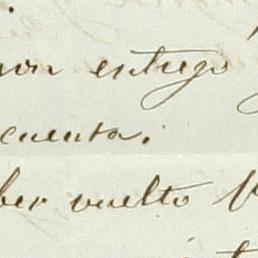 entrego
cuenta.
ber vuelto